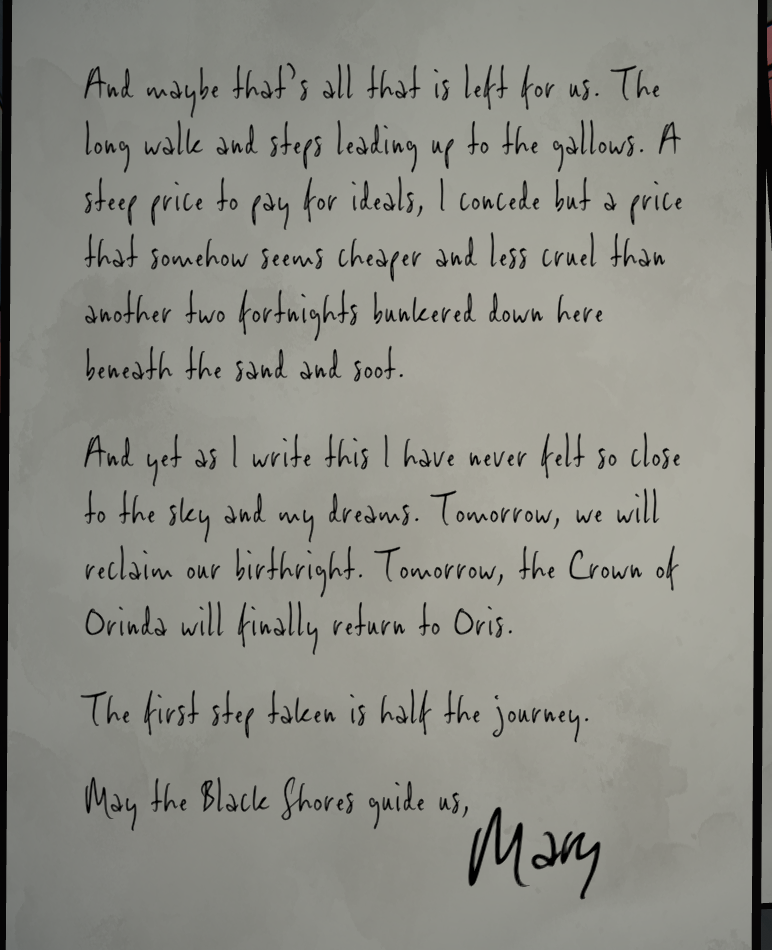 And maybe that's all that is left for us. The
long walk and steps leading up to the gallows. A
steep price to pay for ideals, I concede but a price
that somehow seems cheaper and less cruel than
another two fortnights bunkered down here
beneath the sand and soot.
And yet as I write this I have never felt so close
to the sky and my dreams. Tomorrow, we will
reclaim our birthright. Tomorrow, the Crown of
Orinda will finally return to Oris.
The first step taken is half the journey.
May the Black Shores guide us,
Mary